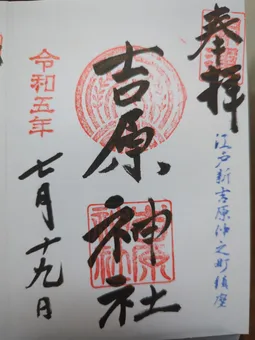 奉拝
江戸新吉原仲之町鎮座
吉原神社
令和五年
七月十九日